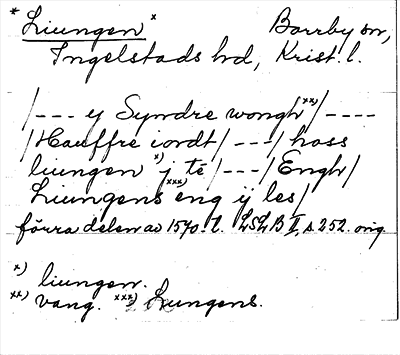 * Liungen x Borrby sn,
Ingelstads hd, Krist. l.
/--- y Syndre wongh xx)/----
/Hauffre iordt/---/hoss
liungen x) j té/---/Engh/
Liungens xxx) eng ij les/
förra delen av 1570-t. LSLB II, s. 252. orig.
x) liungen.
xx) vang. xxx) Liungens.